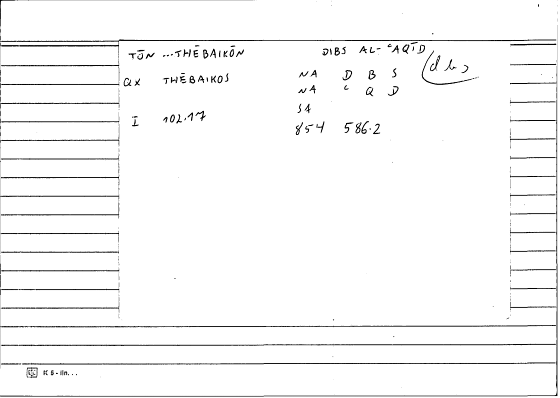 TŌN ...THĒBAIKŌN DIBS AL-ʿAQĪD
(d b s
QX THĒBAIKOS NA D B S
NA ʿ Q D
SA
I 102.17 854 586.2
K 5 - lin...